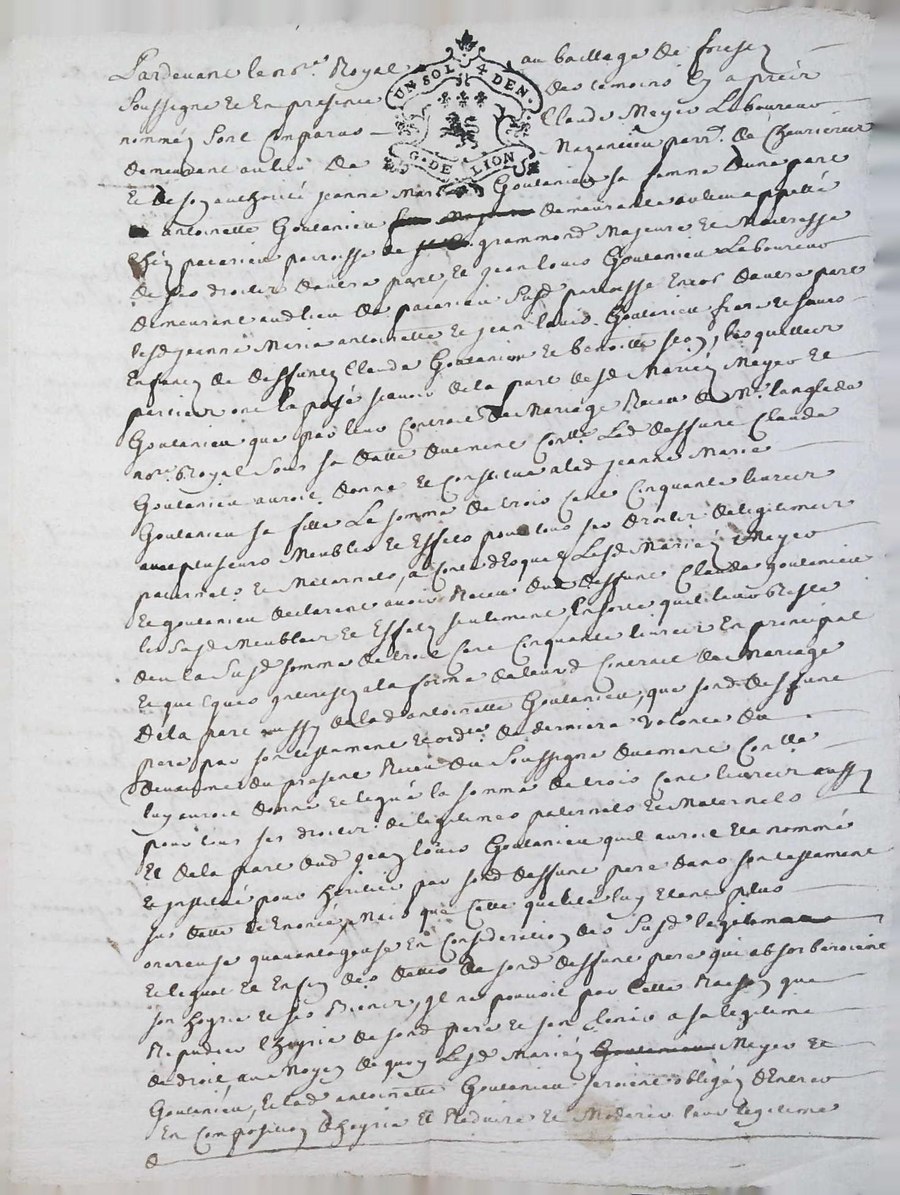 Pardevant le no.re Royal au bailliage de forest
Soussigne et En presence des temoins cy apres
UN SOL 4 DEN.
G. DE LION
nommés Sont Comparus Claude Meyer Laboureur
demeurant au lieu de Mazenieu parr. de Chevrieres
Et de son authorité jeanne Marie Goutanieu sa femme d'une part
antoinette Goutanieu demeurante au lieu appellé
Chez pacarieu parroisse de grammond Majeure et Maitresse
de ses droits d'autre part, Et jean louis Goutanieu Laboureur
demeurant aud lieu de pacarieu Susd parroisse Encor d'autre part
lesd jeanne Marie antoinette et jean louis Goutanieu frere et soeurs
Enfans de deffunts Claude Goutanieu et benoitte, lesquelles
parties ont Exposé scavoir de la part desd Mariés Meyer et
Goutanieu que par leur Contract de Mariage Receu de Me langlade
nore Royal Sous sa datte duement Contlé Led deffunt Claude
Goutanieu auroit donné et Constitué a lad jeanne Marie
Goutanieu sa fille La somme de trois cent Cinquante livres
avec plusieurs Meubles et Effets pour tous ses droits de legitimes
paternels et Maternels, a Compte de quoy Lesd Mariés Meyer
Et Goutanieu declarent avoir Receu dud deffunt Claude goutanieu
les Susd Meubles Et Effets seulement, Ensorte qu'il leur Reste
deu la Susd somme de trois Cent Cinquante livres En principal
Et quelques interests a la forme de leurd Contract de Mariage
De la part aussy de lad antoinette Goutanieu, que sond deffunt
pere par son testament et ordre de derniere volonté du
devant du present Receu du Soussigné duement Contlé
luy auroit donné et legué la somme de trois Cent livres aussy
pour tous ses droits de legitimes paternels et Maternels
Et de la part dud jean louis Goutanieu qu'il auroit Eté nommé
Et institué pour heritier par sond deffunt pere dans son testament
sus datté et Enoncé, Mais que Cette qualité luy Etant plus
onereuse qu'avantageuse En Consideration des Susd legitimes
Et legat Et Enfin des dettes de sond deffunt pere qui absorberoient
son hoyrie et ses Biens, il ne pouvoit par Cette Raison que
Repudier l'hoyrie de sond pere et s'en tenir a sa legitime
de droit, au Moyen de quoy Lesd Mariés Meyer et
Goutanieu, Et lad antoinette Goutanieu seroient obligés d'Entrer
En Composition d'hoyrie Et Reduire et Moderer leurs legitime